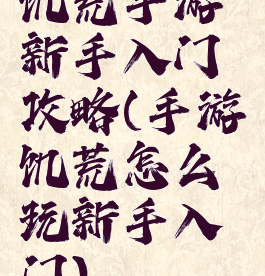 饥荒手游
新手入门
攻略(手游
饥荒怎么
玩新手入
门)